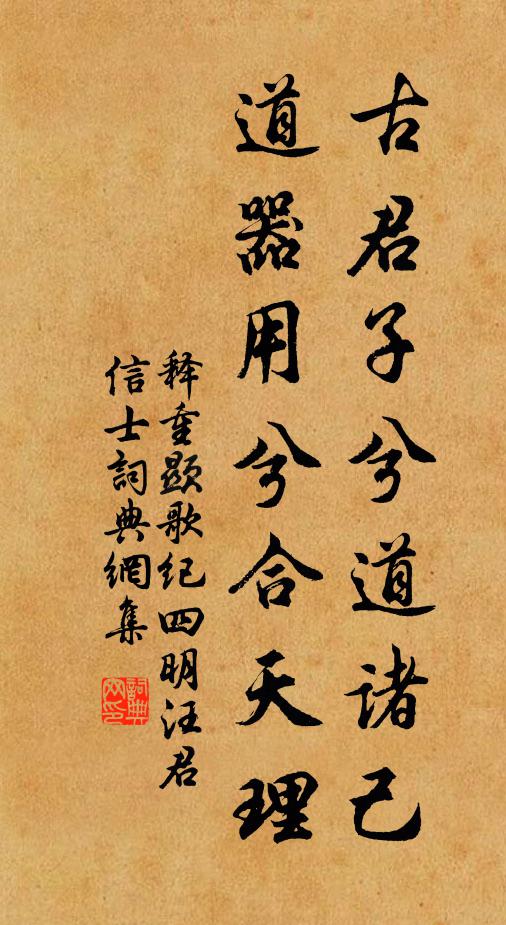 古君子兮道诸己
道器用兮合天理
释重顯歌纪四明汪君
信士詞典網集
詞典网印